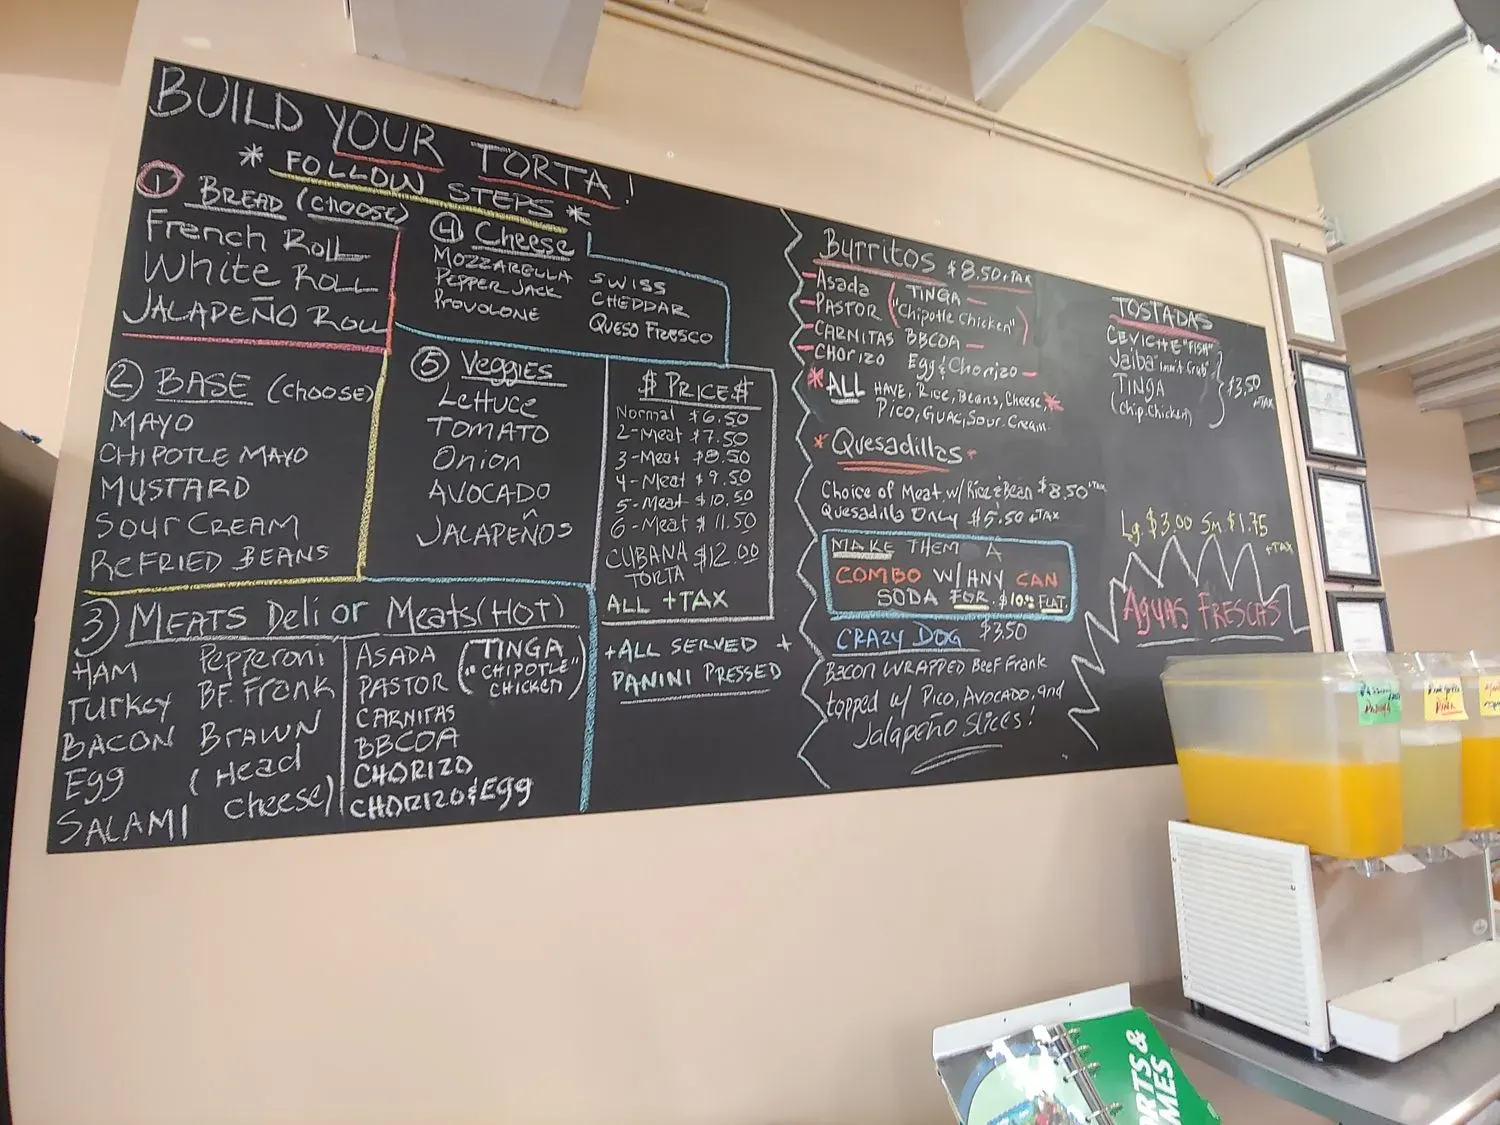 BUILD YOUR TORTA!
* FOLLOW STEPS *
1 BREAD (CHOOSE)
French Roll
White Roll
JALAPEÑO ROLL
2 BASE (choose)
MAYO
CHIPOTLE MAYO
MUSTARD
SOUR CREAM
REFRIED BEANS
3) MEATS Deli or Meats (HOT)
HAM
TURKEY
BACON
Egg
SALAMI
Pepperoni
BF. Frank
BRAWN
(Head
cheese)
ASADA
PASTOR
CARNITAS
BBCOA
CHORIZO
CHORIZO & Egg
(TINGA
"CHIPOTLE"
CHICKEN)
4 Cheese
MOZZARELLA
PEPPER JACK
PROVOLONE
SWISS
CHEDDAR
QUESO FRESCO
5 Veggies
Lettuce
TOMATO
Onion
AVOCADO
JALAPEÑOS
$ PRICE $
Normal $6.50
2-Meat $7.50
3-Meat $8.50
4-Meat $9.50
5-Meat $10.50
6-Meat $11.50
CUBANA $12.00
TORTA
ALL +TAX
+ALL SERVED +
PANINI PRESSED
Burritos $8.50 +TAX
- Asada
- PASTOR
- CARNITAS
- CHORIZO
(TINGA -
"Chipotle Chicken")
BBCOA -
Egg & Chorizo -
*ALL HAVE, Rice, Beans, Cheese,*
Pico, GUAC, Sour. Cream.
* Quesadillas *
Choice of Meat w/ Rice & Bean $8.50 +TAX
Quesadilla Only $5.50 +TAX
MAKE THEM A
COMBO W/ ANY CAN
SODA FOR $10.00 FLAT.
CRAZY DOG $3.50
BACON WRAPPED Beef Frank
topped w/ Pico, Avocado, and
Jalapeño Slices!
TOSTADAS
CEVICHE "FISH"
Jaiba "imit Crab"
TINGA
(chip. chicken)
$3.50
+TAX
Lg $3.00 Sm $1.75
+TAX
AGUAS FRESCAS